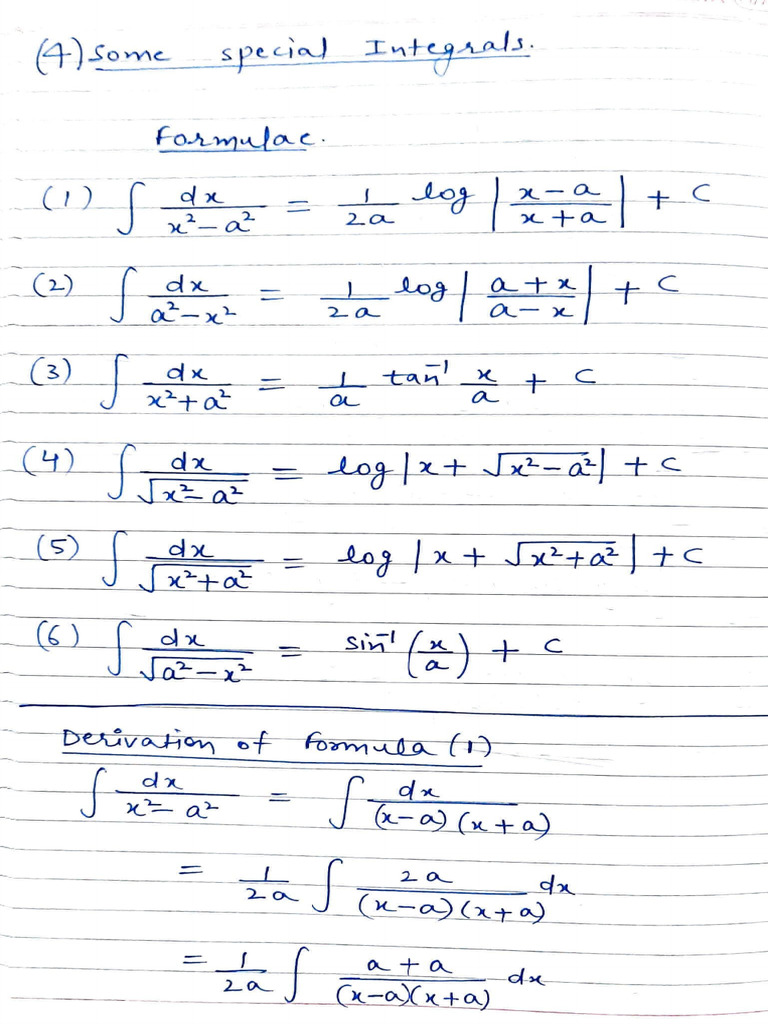 (4) Some special Integrals.
Formulae.
(1) ∫ dx/(x² − a²) = 1/2a log |(x − a)/(x + a)| + C
(2) ∫ dx/(a² − x²) = 1/2a log |(a + x)/(a − x)| + C
(3) ∫ dx/(x² + a²) = 1/a tan⁻¹ x/a + C
(4) ∫ dx/√(x² − a²) = log |x + √(x² − a²)| + C
(5) ∫ dx/√(x² + a²) = log |x + √(x² + a²)| + C
(6) ∫ dx/√(a² − x²) = sin⁻¹ (x/a) + C
Derivation of Formula (1)
∫ dx/(x² − a²) = ∫ dx/((x − a)(x + a))
= 1/2a ∫ 2a/((x − a)(x + a)) dx
= 1/2a ∫ (a + a)/((x − a)(x + a)) dx